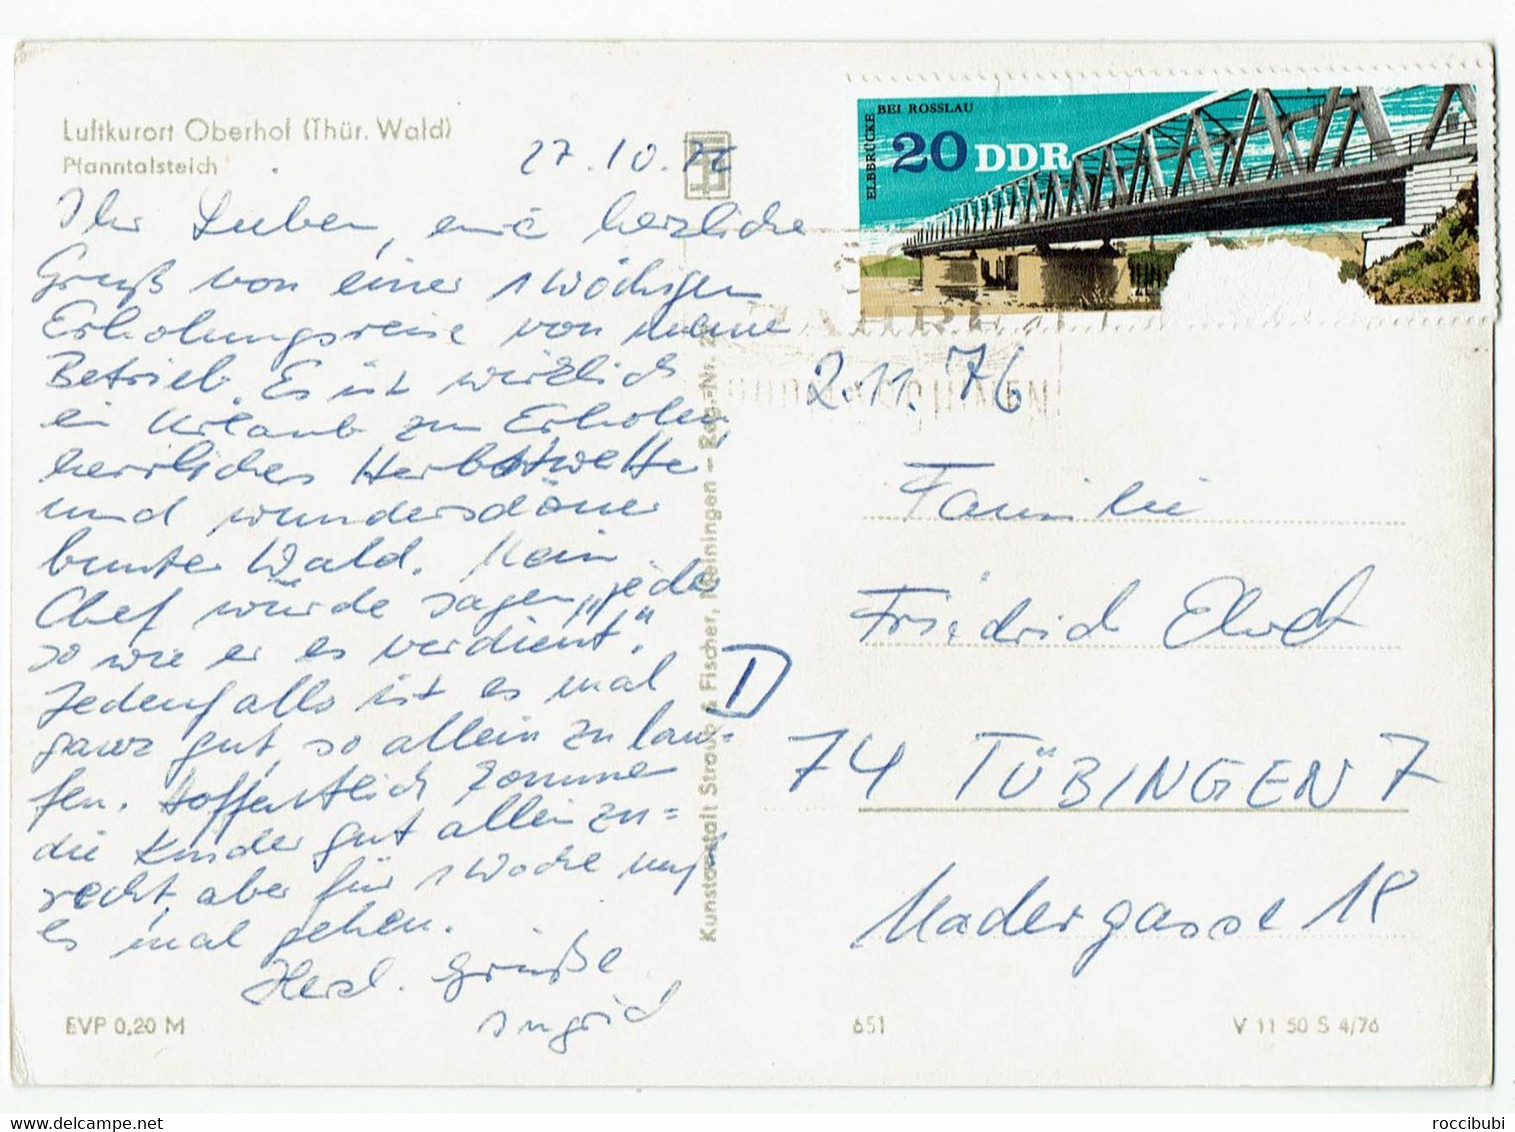 Luftkurort Oberhof (Thür. Wald)
Pfanntalsteich
27.10.76
Ihr Lieben, eine herzliche
Gruß von einer 1 wöchigen
Erholungsreise von meine
Betrieb. Es ist wirklich
ein Urlaub zum Erholen,
herrliches Herbstwetter
und wunderschöner
bunter Wald. Mein
Chef würde sagen „jeder
so wie er es verdient."
Jedenfalls ist es mal
ganz gut, so allein zu lau=
fen. Hoffentlich kommen
die Kinder gut allein zu=
recht, aber für 1 Woche muß
es mal gehen.
Herzl. Grüße
Ingrid
EVP 0,20 M
Kunstanstalt Straub & Fischer, Meiningen – Reg.-Nr.
ELBBRÜCKE BEI ROSSLAU
20 DDR
2.11.76
Familie
Friedrich
74 TÜBINGEN 7
Madergasse 18
651
V 11 50 S 4/76
roccibubi